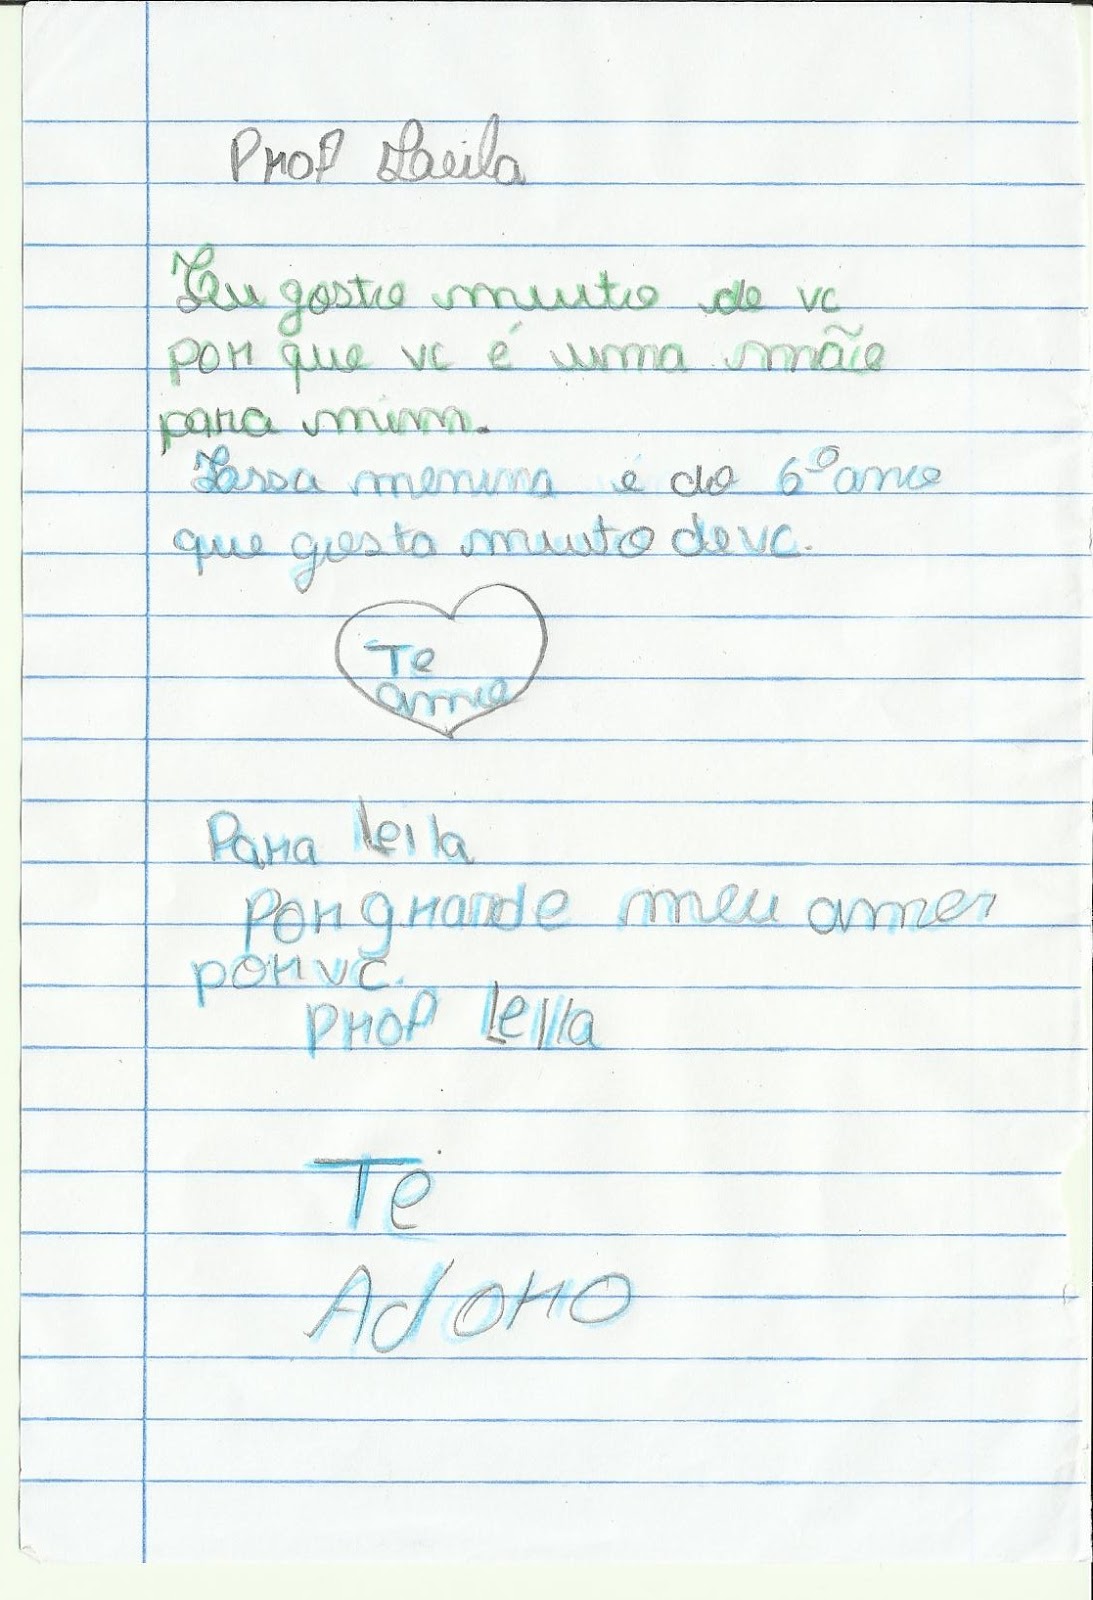 Prof Leila
Eu gosto muito de vc
por que vc é uma mãe
para mim.
Essa menina é do 6º ano
que gosta muito de vc.
Te
amo
Para Leila
por grande meu amor
por vc.
Prof Leila
Te
Adoro